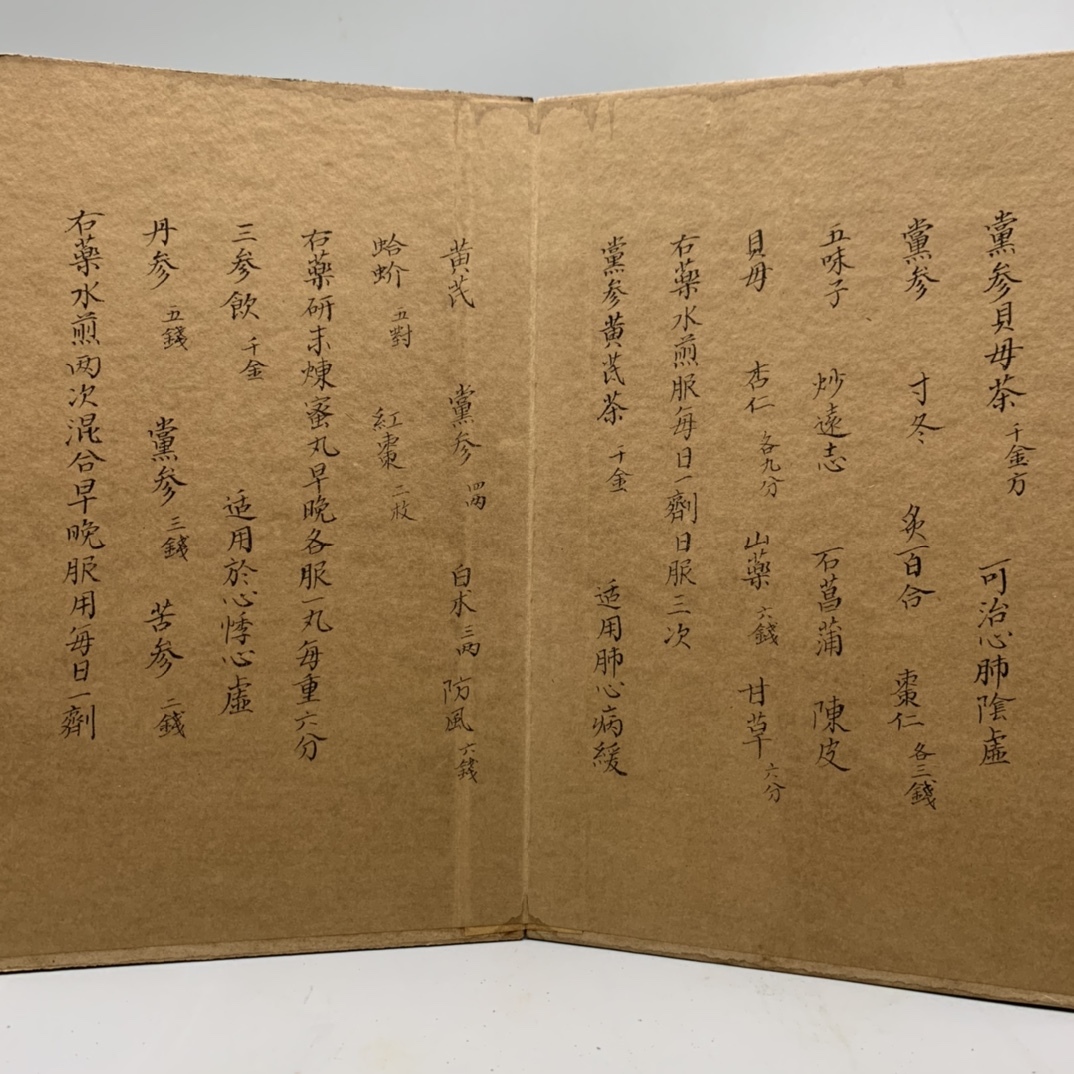 黨参貝母茶 千金方 可治心肺陰虛
黨参 寸冬 炙百合 棗仁 各三錢
五味子 炒遠志 石菖蒲 陳皮
貝母 杏仁 各九分 山藥 六錢 甘草 六分
右藥水煎服每日一劑日服三次
黨参黄芪茶 千金 适用肺心病緩
黄芪 黨参 四兩 白朮 三兩 防風 六錢
蛤蚧 五對 紅棗 二枚
右藥研末煉蜜丸早晚各服一丸每重六分
三参飲 千金 适用於心悸心虛
丹参 五錢 黨参 三錢 苦参 二錢
右藥水煎两次混合早晚服用每日一劑